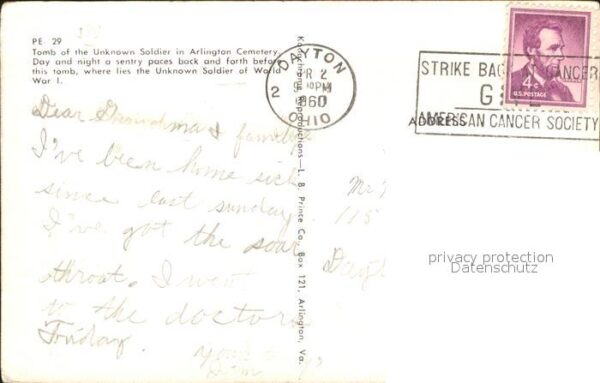 PE 29
Tomb of the Unknown Soldier in Arlington Cemetery.
Day and night a sentry paces back and forth before
this tomb, where lies the Unknown Soldier of World
War I.
Dear Grandma & family
I've been home sick
since last sunday.
I've got the soar
throat. I went
to the doctors
Friday.
Kodachrome Reproductions—L. B. Prince Co., Box 121, Arlington, Va.
DAYTON
2
PM
1960
OHIO
STRIKE BACK AT CANCER
AMERICAN CANCER SOCIETY
4¢
U.S. POSTAGE
ADDRESS
115
privacy protection
Datenschutz